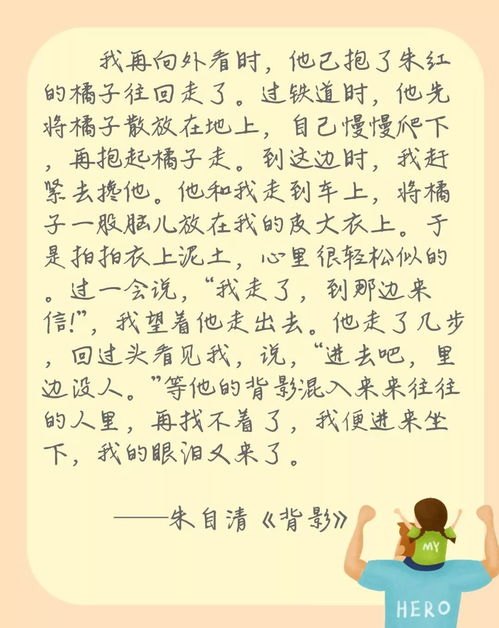 我再向外看时，他已抱了朱红
的橘子往回走了。过铁道时，他先
将橘子散放在地上，自己慢慢爬下
，再抱起橘子走。到这边时，我赶
紧去搀他。他和我走到车上，将橘
子一股脑儿放在我的皮大衣上。于
是拍拍衣上泥土，心里很轻松似的
。过一会说，“我走了，到那边来
信!”，我望着他走出去。他走了几步
，回过头看见我，说，“进去吧，里
边没人。”等他的背影混入来来往往
的人里，再找不着了，我便进来坐
下，我的眼泪又来了。
——朱自清《背影》
MY
HERO